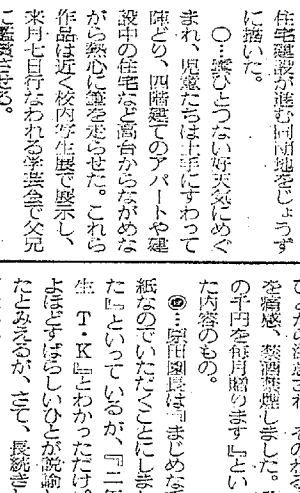 住宅建設が進む同団地をじょうず
に描いた。
○…雲ひとつない好天気にめぐ
まれ、児童たちは土手にすわって
陣どり、四階建てのアパートや建
設中の住宅など高台からながめな
がら熱心に筆を走らせた。これら
作品は近く校内写生展で展示し、
来月七日行なわれる学芸会で父兄
に鑑賞させる。
を痛感、禁酒禁煙しました。
の千円を毎月贈ります』とい
た内容のもの。
…原田園長は『まじめな
紙なのでいただくことにしまし
た』といっているが、『二年
生 T・K』とわかっただけ。
よほどすばらしいひとが説諭し
たとみえるが、さて、長続き